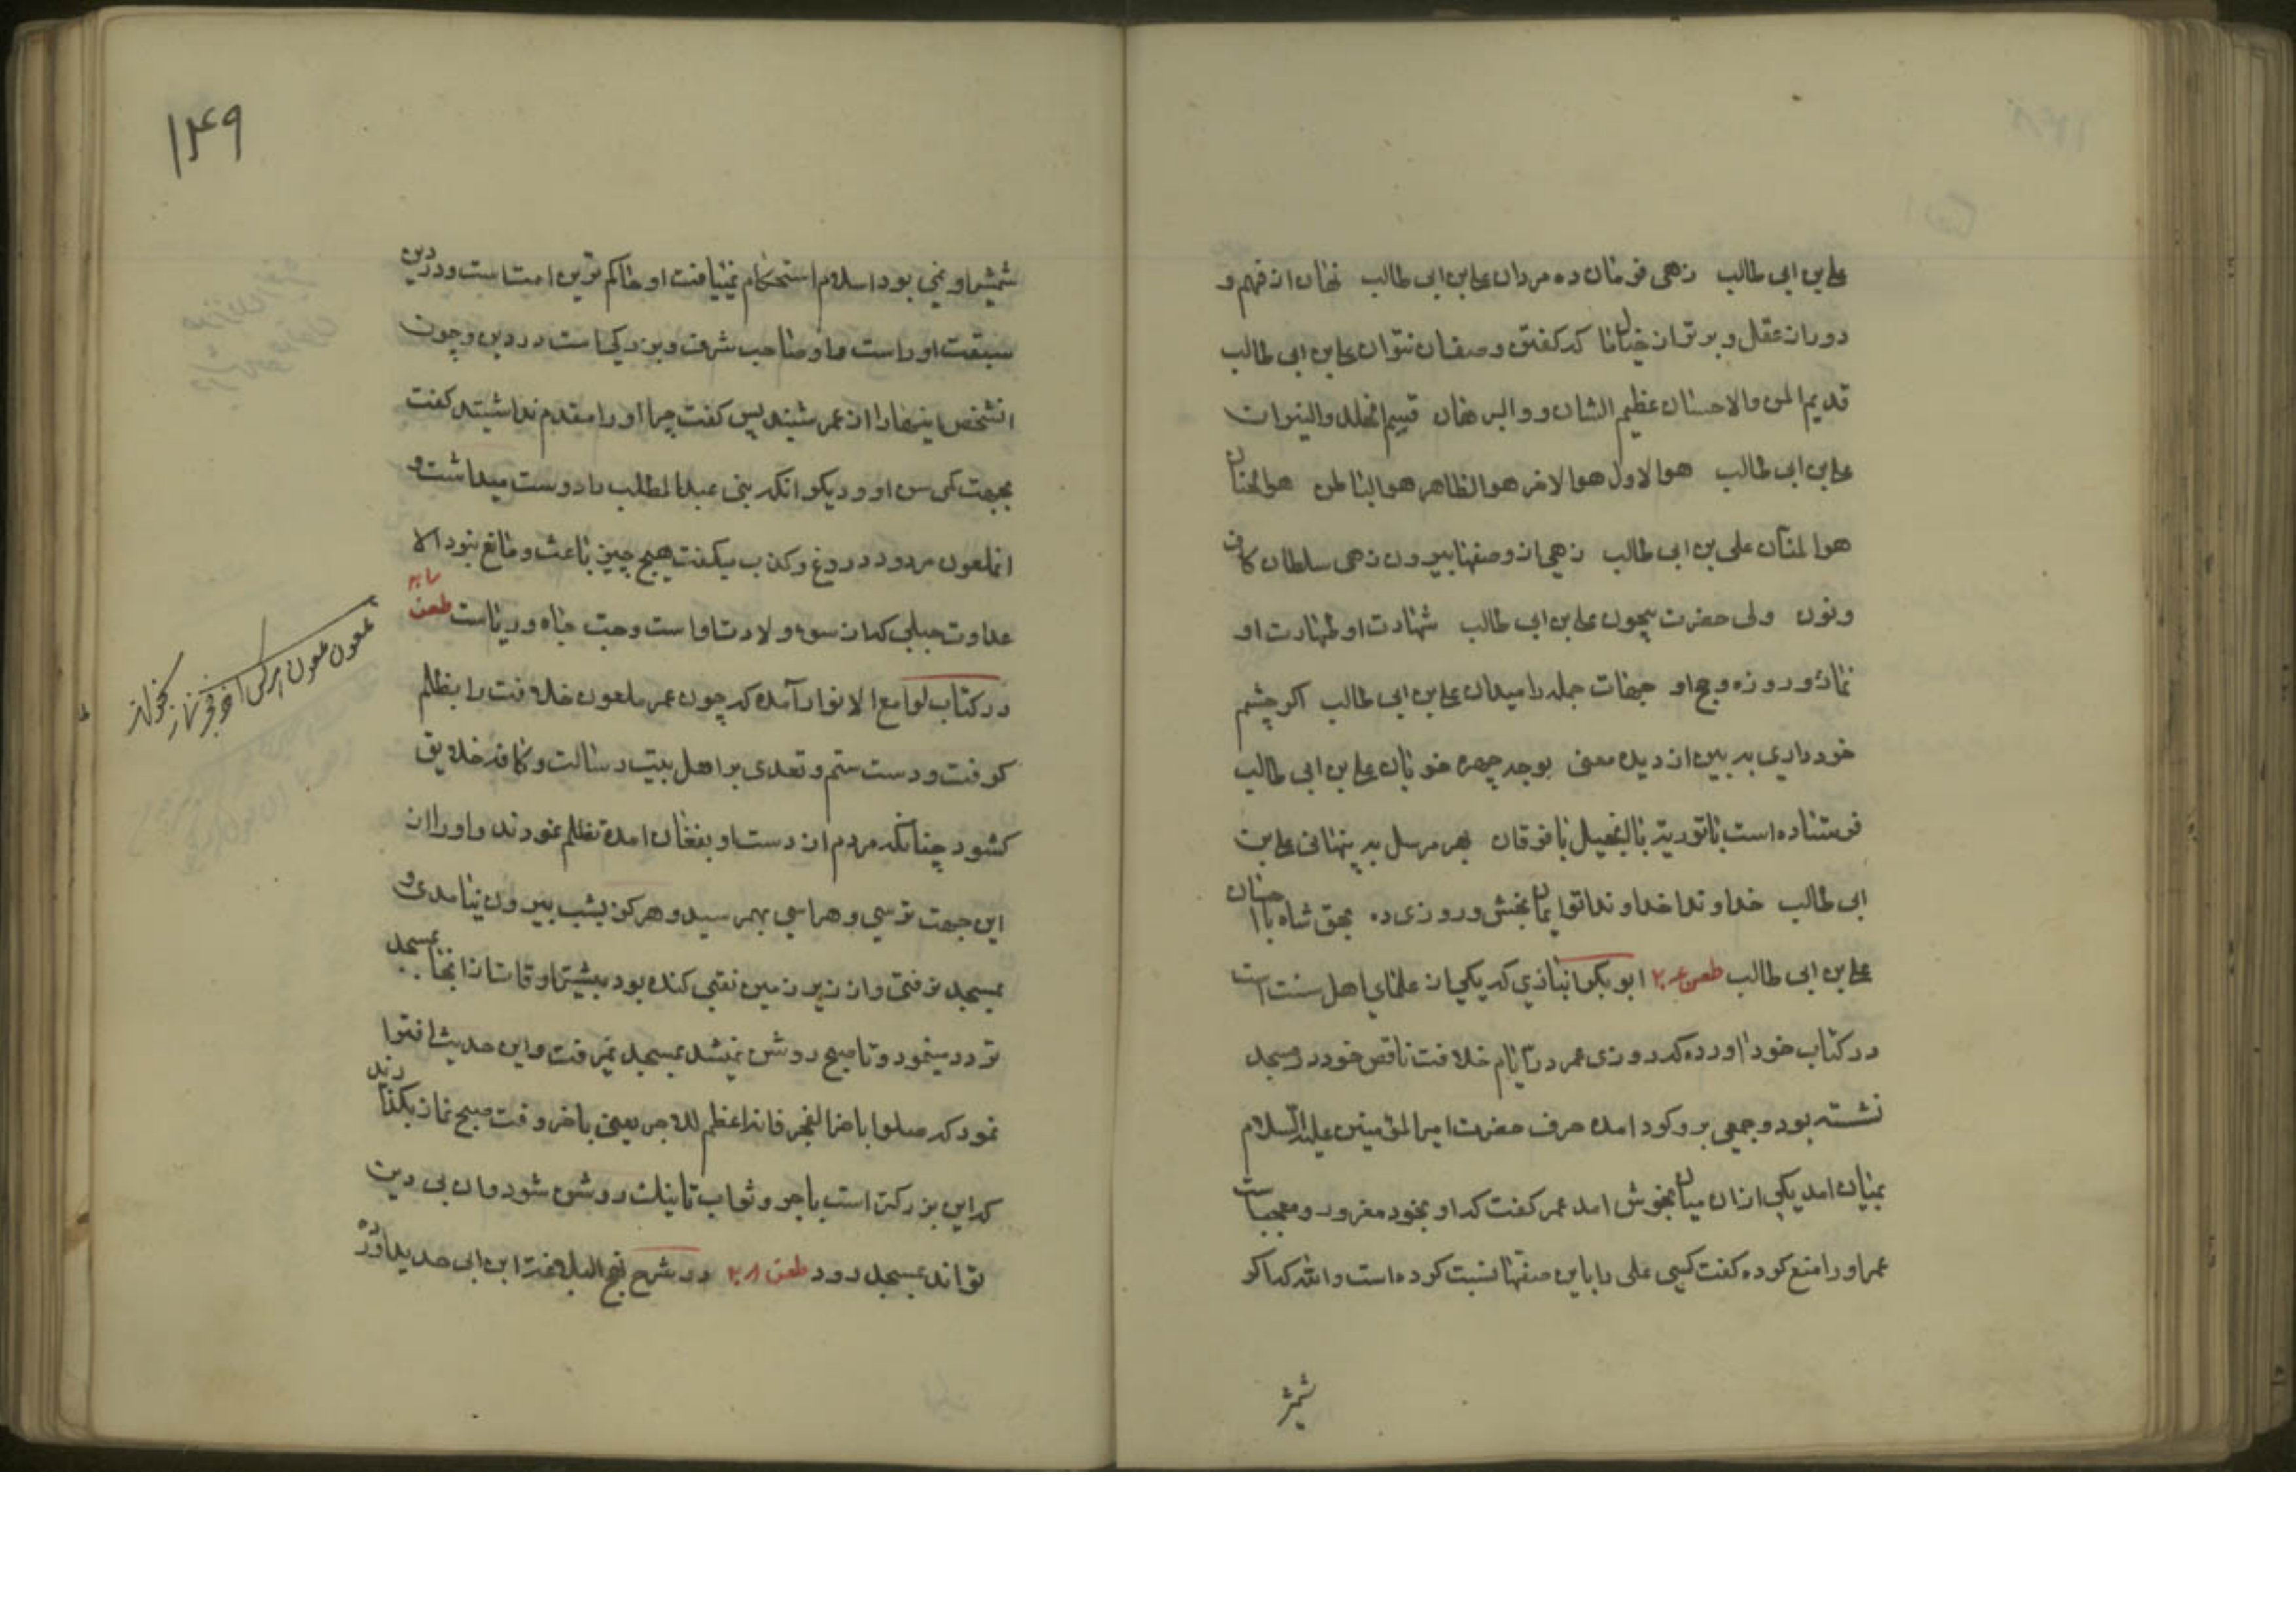 علی بن ابی طالب زهی فرمان ده مردان علی بن ابی طالب نهان از فهم و
دور از عقل و برتر از خیال اما که گفتن وصف ان نتوان علی بن ابی طالب
قدیم المن والاحسان عظیم الشان و والبرهان قسیم الخلد والنیران
علی بن ابی طالب هو الاول هو الاخر هو الظاهر هو الباطن هو الحنان
هو المنان علی بن ابی طالب زهی از وصفها بیرون زهی سلطان کاف
ونون ولی حضرت بیچون علی بن ابی طالب شهادت او طهارت او
نماز و روزه و حج او جهات جمله را میدان علی بن ابی طالب اکر چشم
خود داری به بین از دیده معنی بوجه چهره خوبان علی بن ابی طالب
فرستاده است با توریة با انجیل با فرقان بهر مرسل به پنهانی علی بن
ابی طالب خداوندا خداوندا تو ایمان بخش و روزی ده بحق شاه با احسان
علی بن ابی طالب طعن ۲۰۶ ابوبکر انباری که یکی از علمای اهل سنت است
در کتاب خود اورده که روزی عمر در ایام خلافت ناقص خود در مسجد
نشسته بود و جمعی بر وکرد امده حرف حضرت امیرالمؤمنین علیه السلام
بمیان امد یکی ازان میان بخوش امد عمر کفت که او بخود مغرور و معجبست
عمر او را منع کرده کفت کسی علی را باین صفتها نسبت کرده است والله که اکر
شمشر
۱۴۹
شمشیر او نمی بود اسلام استحکام نمییافت او حاکم ترین امت است و در دین
سبقت او راست و او صاحب شرف و بزرکی است در دین و چون
انشخص اینها را از عمر شنید پس کفت چرا او را مقدم نداشتید کفت
بجهت کمی سن او و دیکر انکه بنی عبدالمطلب را دوست میداشت و
انملعون مردود دروغ و کذب میکفت هیچ چیز باعث و مانع نبود الا
عداوت جبلی که از سوء ولادت او است و حب جاه و ریاست طعن
در کتاب لوامع الانوار آمده که چون عمر ملعون خلافت را بظلم
کرفت و دست ستم و تعدی بر اهل بیت رسالت و کافه خلایق
کشود چنانکه مردم از دست او بفغان امده تظلم نمودند و او را از
این جهت ترسی و هراسی بهمرسید و هرکز بشب بیرون نیامدی و
بمسجد نرفتی و از زیر زمین نقبی کنده بود بیشتر اوقات از انجا بمسجد
تردد مینمود و تا صبح روشن نمیشد بمسجد نمیرفت و این حدیث افترا
نمود که صلوا باخر الفجر فانه اعظم للاجر یعنی باخر وقت صبح نماز بکذارند
که این بزرکتر است باجر و ثواب تا نیک روشن شود و ان بی دین
تواند بمسجد رود طعن ۲۰۸ در شرح نهج البلاغه ابن ابی حدید اورده